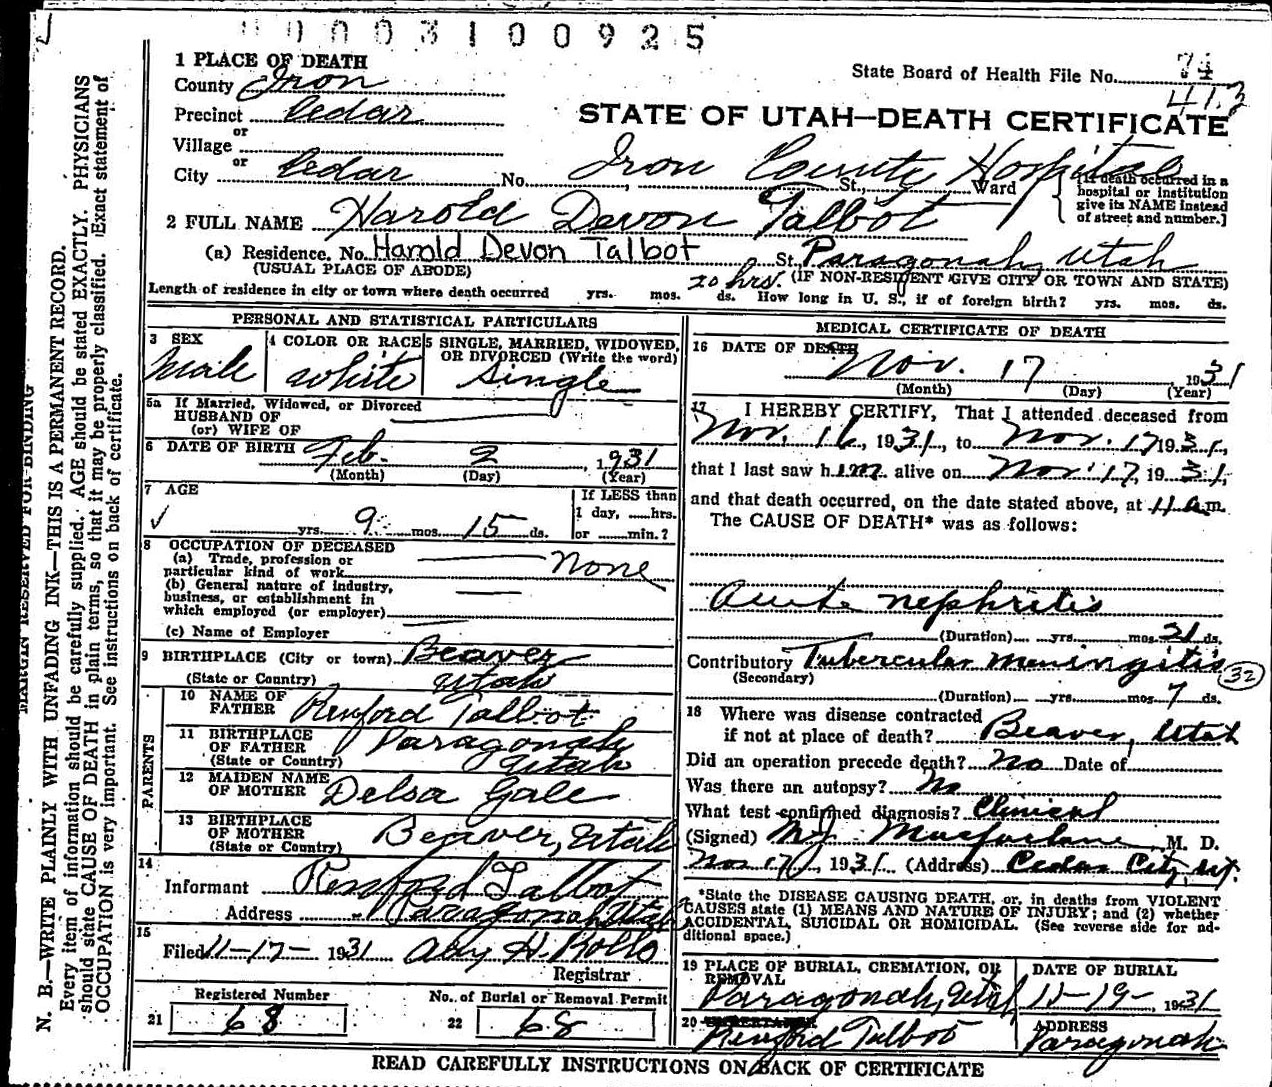 0003100925
1 PLACE OF DEATH
State Board of Health File No. 74
413
County Iron
Precinct Cedar
STATE OF UTAH—DEATH CERTIFICATE
or
Village
or
City Cedar No. Iron County Hospital St., Ward [If death occurred in a hospital or institution give its NAME instead of street and number.]
2 FULL NAME Harold Devon Talbot
(a) Residence. No. Harold Devon Talbot St. Paragonah, Utah
(USUAL PLACE OF ABODE) (IF NON-RESIDENT GIVE CITY OR TOWN AND STATE)
Length of residence in city or town where death occurred yrs. mos. 20 hrs. ds. How long in U. S., if of foreign birth? yrs. mos. ds.
PERSONAL AND STATISTICAL PARTICULARS
3 SEX 4 COLOR OR RACE 5 SINGLE, MARRIED, WIDOWED, OR DIVORCED (Write the word)
Male white Single
5a If Married, Widowed, or Divorced
HUSBAND OF
(or) WIFE OF
6 DATE OF BIRTH Feb. 2, 1931
(Month) (Day) (Year)
7 AGE If LESS than
1 day, hrs.
yrs. 9 mos. 15 ds. or min.?
8 OCCUPATION OF DECEASED
(a) Trade, profession or
particular kind of work None
(b) General nature of industry,
business, or establishment in
which employed (or employer)
(c) Name of Employer
9 BIRTHPLACE (City or town) Beaver
(State or Country) Utah
PARENTS
10 NAME OF
FATHER Renford Talbot
11 BIRTHPLACE
OF FATHER Paragonah
(State or Country) Utah
12 MAIDEN NAME
OF MOTHER Delsa Gale
13 BIRTHPLACE
OF MOTHER Beaver, Utah
(State or Country)
14
Informant Renford Talbot
Address Paragonah, Utah
15
Filed 11-17- 1931
H. Rollo
Registrar
Registered Number No. of Burial or Removal Permit
21 68 22 68
MEDICAL CERTIFICATE OF DEATH
16 DATE OF DEATH
Nov. 17 1931
(Month) (Day) (Year)
17 I HEREBY CERTIFY, That I attended deceased from
Nov. 16, 1931, to Nov. 17 1931,
that I last saw him alive on Nov. 17, 1931,
and that death occurred, on the date stated above, at 11 a.m.
The CAUSE OF DEATH* was as follows:
Acute nephritis
(Duration) yrs. mos. 21 ds.
Contributory Tubercular meningitis 32
(Secondary)
(Duration) yrs. mos. 7 ds.
18 Where was disease contracted
if not at place of death? Beaver, Utah
Did an operation precede death? No Date of
Was there an autopsy? No
What test confirmed diagnosis? Clinical
(Signed) M.J. Macfarlane, M. D.
Nov 17, 1931 (Address) Cedar City, Ut.
*State the DISEASE CAUSING DEATH, or, in deaths from VIOLENT
CAUSES state (1) MEANS AND NATURE OF INJURY; and (2) whether
ACCIDENTAL, SUICIDAL OR HOMICIDAL. (See reverse side for ad-
ditional space.)
19 PLACE OF BURIAL, CREMATION, OR
REMOVAL DATE OF BURIAL
Paragonah, Utah 11-19- 1931
20 UNDERTAKER ADDRESS
Renford Talbot Paragonah
READ CAREFULLY INSTRUCTIONS ON BACK OF CERTIFICATE
MARGIN RESERVED FOR BINDING
N. B.—WRITE PLAINLY WITH UNFADING INK—THIS IS A PERMANENT RECORD.
Every item of information should be carefully supplied. AGE should be stated EXACTLY. PHYSICIANS
should state CAUSE OF DEATH in plain terms, so that it may be properly classified. Exact statement of
OCCUPATION is very important. See instructions on back of certificate.